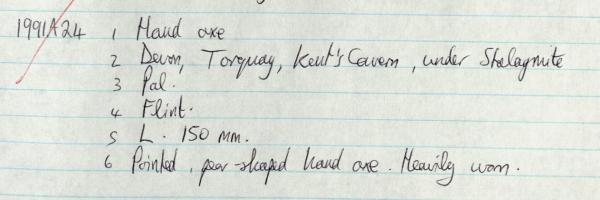 1991A24 1 Hand axe
2 Devon, Torquay, Kent's Cavern, under Stalagmite
3 Pal.
4 Flint.
5 L. 150 mm.
6 Pointed, pear-shaped hand axe. Heavily worn.